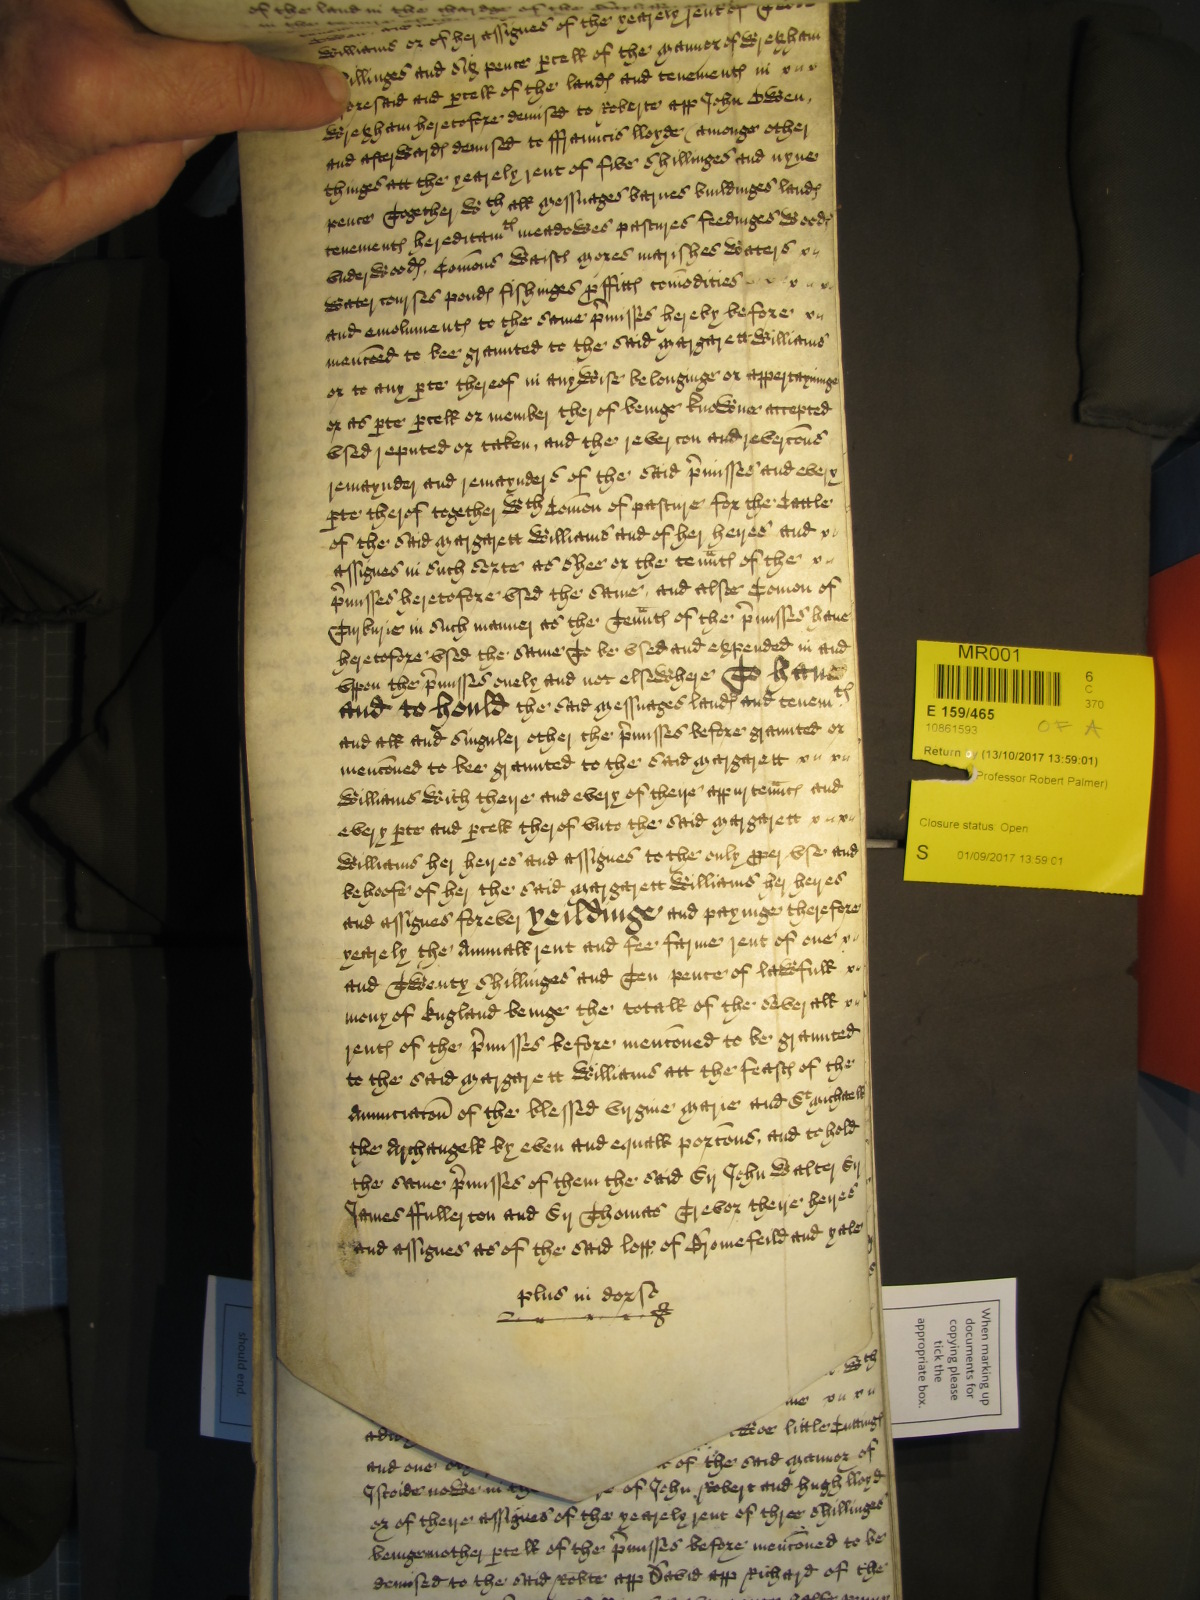 of the land in the
Williams or of her assignes of the yearely rent of Three
shillinges and six pence p̱cell of the mannor of Wrexham
aforesaid and p̱cell of the landꝭ and tenementꝭ in
Wrexham heretofore demised to Roberte app John Owen,
and afterwardꝭ demised to ffrauncis lloyde amongꝭ other
thinges att the yearely rent of five shillinges and nyne
pence Together wᵗʰ all messuages barnes buildinges landꝭ
tenementꝭ hereditamᵗꝭ meadowes pastures feedinges woodꝭ
vnderwoodꝭ, Com̄ons wastꝭ mores marishes waters
water courses pondꝭ fishinges p̱ffittꝭ com̄odities
and emolumentꝭ to the same p̄misses hereby before
menc̄oned to bee graunted to the said Margarett Williams
or to any p̱te thereof in any wise belonginge or appertayninge
or as p̱te p̱cell or member therof beinge knowne accepted
vsed reputed or taken, and the reverc̄on and reverc̄ons
remaynder and remaynders of the said p̄misses and every
p̱te therof together wᵗʰ Com̄on of pasture for the Cattle
of the said Margarett Williams and of her heyres and
assignes in such sorte as shee or the ten̄ntꝭ of the
p̄misses heretofore vsed the same, and alsoe Com̄on of
Turburie in such manner as the Ten̄ntꝭ of the p̄misses have
heretofore vsed the same To be vsed and expended in and
vpon the p̄misses onely and not elsewhere To have
and to hould the said messuages landꝭ and tenemᵗꝭ
and all and singuler other the p̄misses before graunted or
menc̄oned to bee graunted to the said Margarett
Williams with theire and every of theire appurten̄ncꝭ and
every p̱te and p̱cell therof vnto the said Margarett
Williams her heyres and assignes to the only p̱per vse and
behoofe of her the said Margarett Williams her heyres
and assignes forever yeildinge and payinge therefore
yearely the Annuall rent and fee farme rent of one
and Twenty shillinges and Ten pence of lawfull
mony of England beinge the totall of the severall
rentꝭ of the p̄misses before menc̄oned to be graunted
to the said Margarett Williams att the feastꝭ of the
Annunciac̄on of the blessed virgine Marie and Sᵗ Michaell
the Archangell by even and equall porc̄ons, and to hold
the same p̄misses of them the said Sr John Walter Sr
James ffullerton and Sr Thomas Trevor theire heyres
and assignes as of the said lopp of Bromefeild and yale
plus in dorso
wᵗʰ
little Cuttingꝭ
and one of the said mannor of
Iscoide nowe in of John Robert and hugh lloyd
or of theire assignes of the yearely rent of three shillinges
beinge another p̱cell of the p̄misses before menc̄oned to be
demised to the said Robte app David app Richard of the
MR001
6
C
370
E 159/465
OF A
10861593
Return by (13/10/2017 13:59:01)
Professor Robert Palmer)
Closure status: Open
S 01/09/2017 13:59:01
When marking up
documents for
copying please
tick the
appropriate box.
should end.